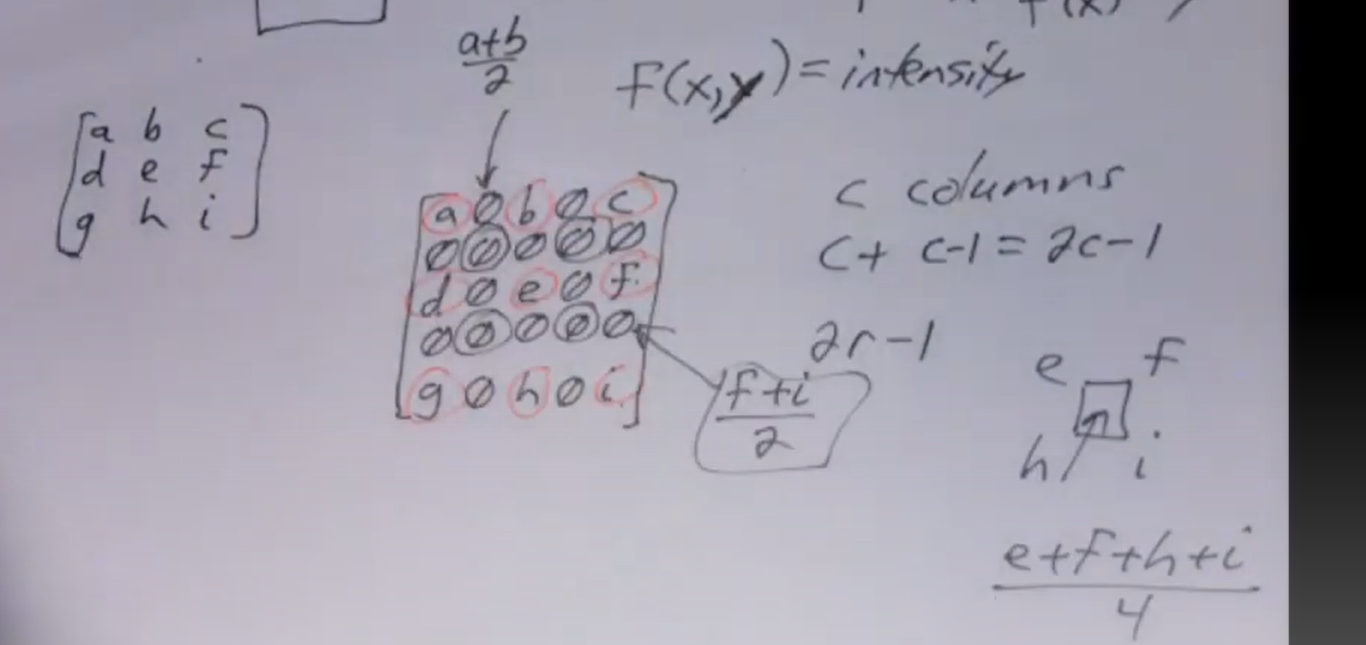 f(x)
a+b
2
F(x,y) = intensity
[a b c
d e f
g h i]
[a 0 b 0 c
0 0 0 0 0
d 0 e 0 f
0 0 0 0 0
g 0 h 0 i]
c columns
c + c-1 = 2c-1
2r-1
f+i
2
e f
h i
e+f+h+i
4